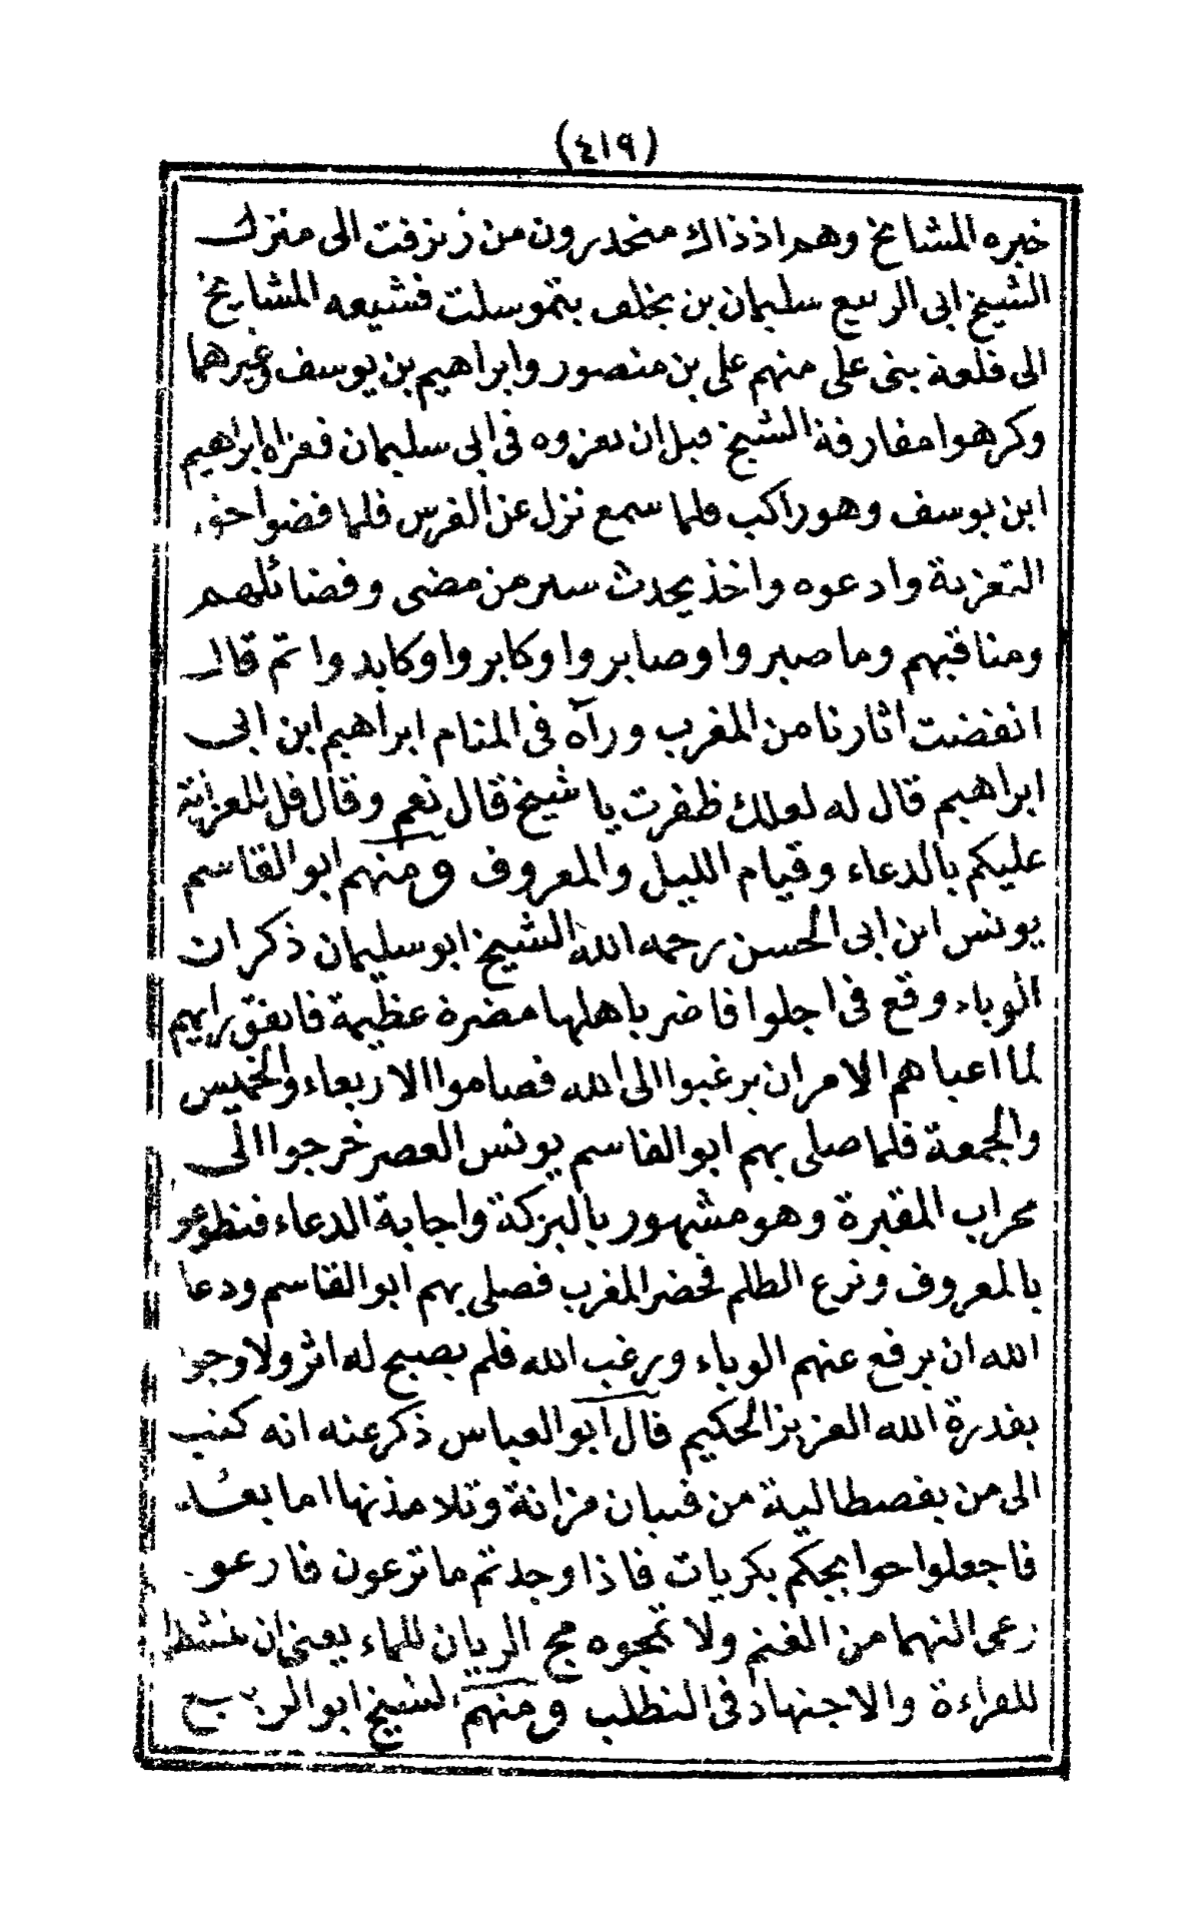 (٤١٩)
خبره المشايخ وهم اذ ذاك منحدرون من زنزفت الى منزل
الشيخ ابى الربيع سليمان بن يخلف بتموسلت فشيعه المشايخ
الى قلعة بنى على منهم على بن منصور وابراهيم بن يوسف وغيرهما
وكرهوا مفارقة الشيخ قبل ان يعزوه فى ابى سليمان فعزاه ابراهيم
ابن يوسف وهو راكب فلما سمع نزل عن الفرس فلما قضوا حق
التعزية وادعوه واخذ يحدث سير من مضى وفضائلهم
ومناقبهم وما صبروا وصابروا وكابروا وكابدوا ثم قال
انقضت اثارنا من المغرب ورآه فى المنام ابراهيم ابن ابى
ابراهيم قال له لعلك ظفرت يا شيخ قال نعم وقال قل للعزابة
عليكم بالدعاء وقيام الليل والمعروف ومنهم ابو القاسم
يونس ابن ابى الحسن رحمه الله الشيخ ابو سليمان ذكر ان
الوباء وقع فى اجلوا فاضر باهلها مضرة عظيمة فاتفق رايهم
لما اعياهم الامر ان يرغبوا الى الله فصاموا الاربعاء والخميس
والجمعة فلما صلى بهم ابو القاسم يونس العصر خرجوا الى
محراب المقبرة وهو مشهور بالبركة واجابة الدعاء فتطوعو
بالمعروف ونزع الظلم فحضر المغرب فصلى بهم ابو القاسم ودعا
الله ان يرفع عنهم الوباء ورغب الله فلم يصبح له اثر ولا وجو
بقدرة الله العزيز الحكيم قال ابو العباس ذكر عنه انه كتب
الى من بقصطالية من فتيان مزاتة وتلامذتها اما بعد
فاجعلوا حوا بجكم بكريات فاذا وجدتم ما ترعون فارعو
رعى النهما من الغنم ولا تمجوه مج الريان للماء يعنى ان
للقراءة والاجتهاد فى التطلب ومنهم الشيخ ابو الربيع